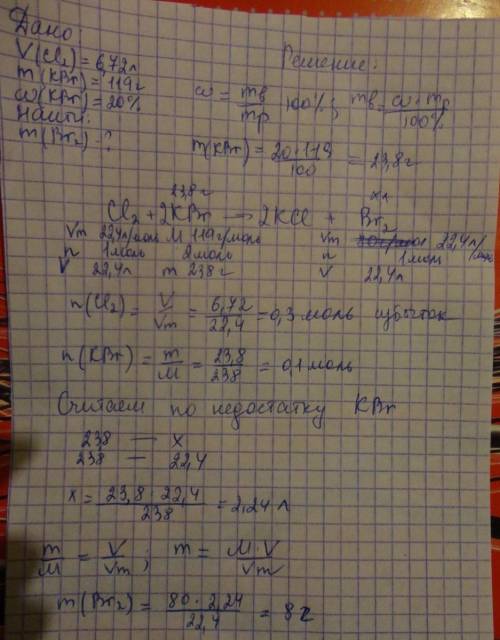 Дано
V(Cl₂)=6,72л
m(KBr)=119г
ω(KBr)=20%
Найти:
m(Br₂)-?
Решение:
ω = mв/mр 100%; mв = ω·mр/100%
m(KBr) = 20·119/100 = 23,8г
23,8г xл
Cl₂ + 2KBr → 2KCl + Br₂
Vm 22,4л/моль M 119г/моль Vm 22,4л/моль
n 1моль 2моль n 1моль
V 22,4л m 238г V 22,4л
n(Cl₂) = V/Vm = 6,72/22,4 = 0,3 моль избыток
n(KBr) = m/M = 23,8/238 = 0,1 моль
Считаем по недостатку KBr
238 — x
238 — 22,4
x = 23,8·22,4/238 = 2,24л
m/M = V/Vm; m = M·V/Vm
m(Br₂) = 80·2,24/22,4 = 8г